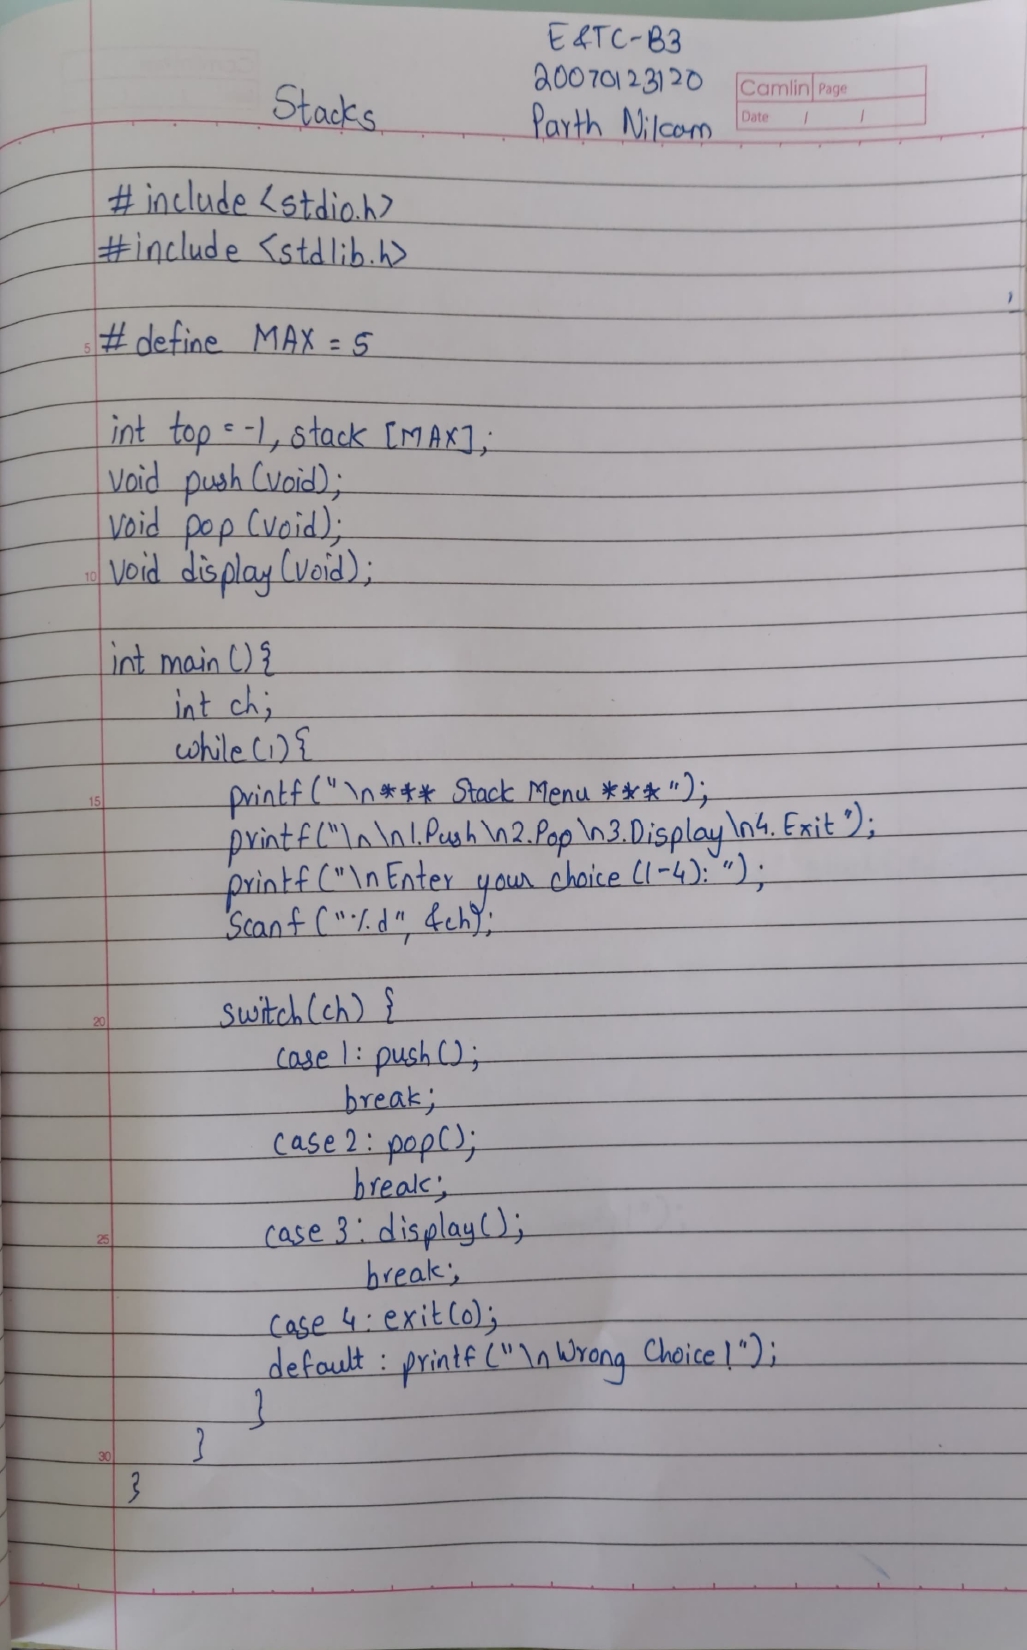 E&TC-B3
20070123120
Camlin Page
Stacks
Parth Nilcam
Date / /
# include <stdio.h>
#include <stdlib.h>
5 # define MAX = 5
int top = -1, stack [MAX];
void push (void);
void pop (void);
10 void display (void);
int main () {
int ch;
while (1) {
15 printf ("\n*** Stack Menu ***");
printf("\n\n1.Push\n2.Pop\n3.Display\n4. Exit");
printf ("\nEnter your choice (1-4): ");
Scanf ("%d", &ch);
20 switch(ch) {
case 1: push ();
break;
case 2: pop();
break;
25 case 3: display();
break;
case 4: exit(0);
default : printf ("\nWrong Choice!");
}
30 }
}